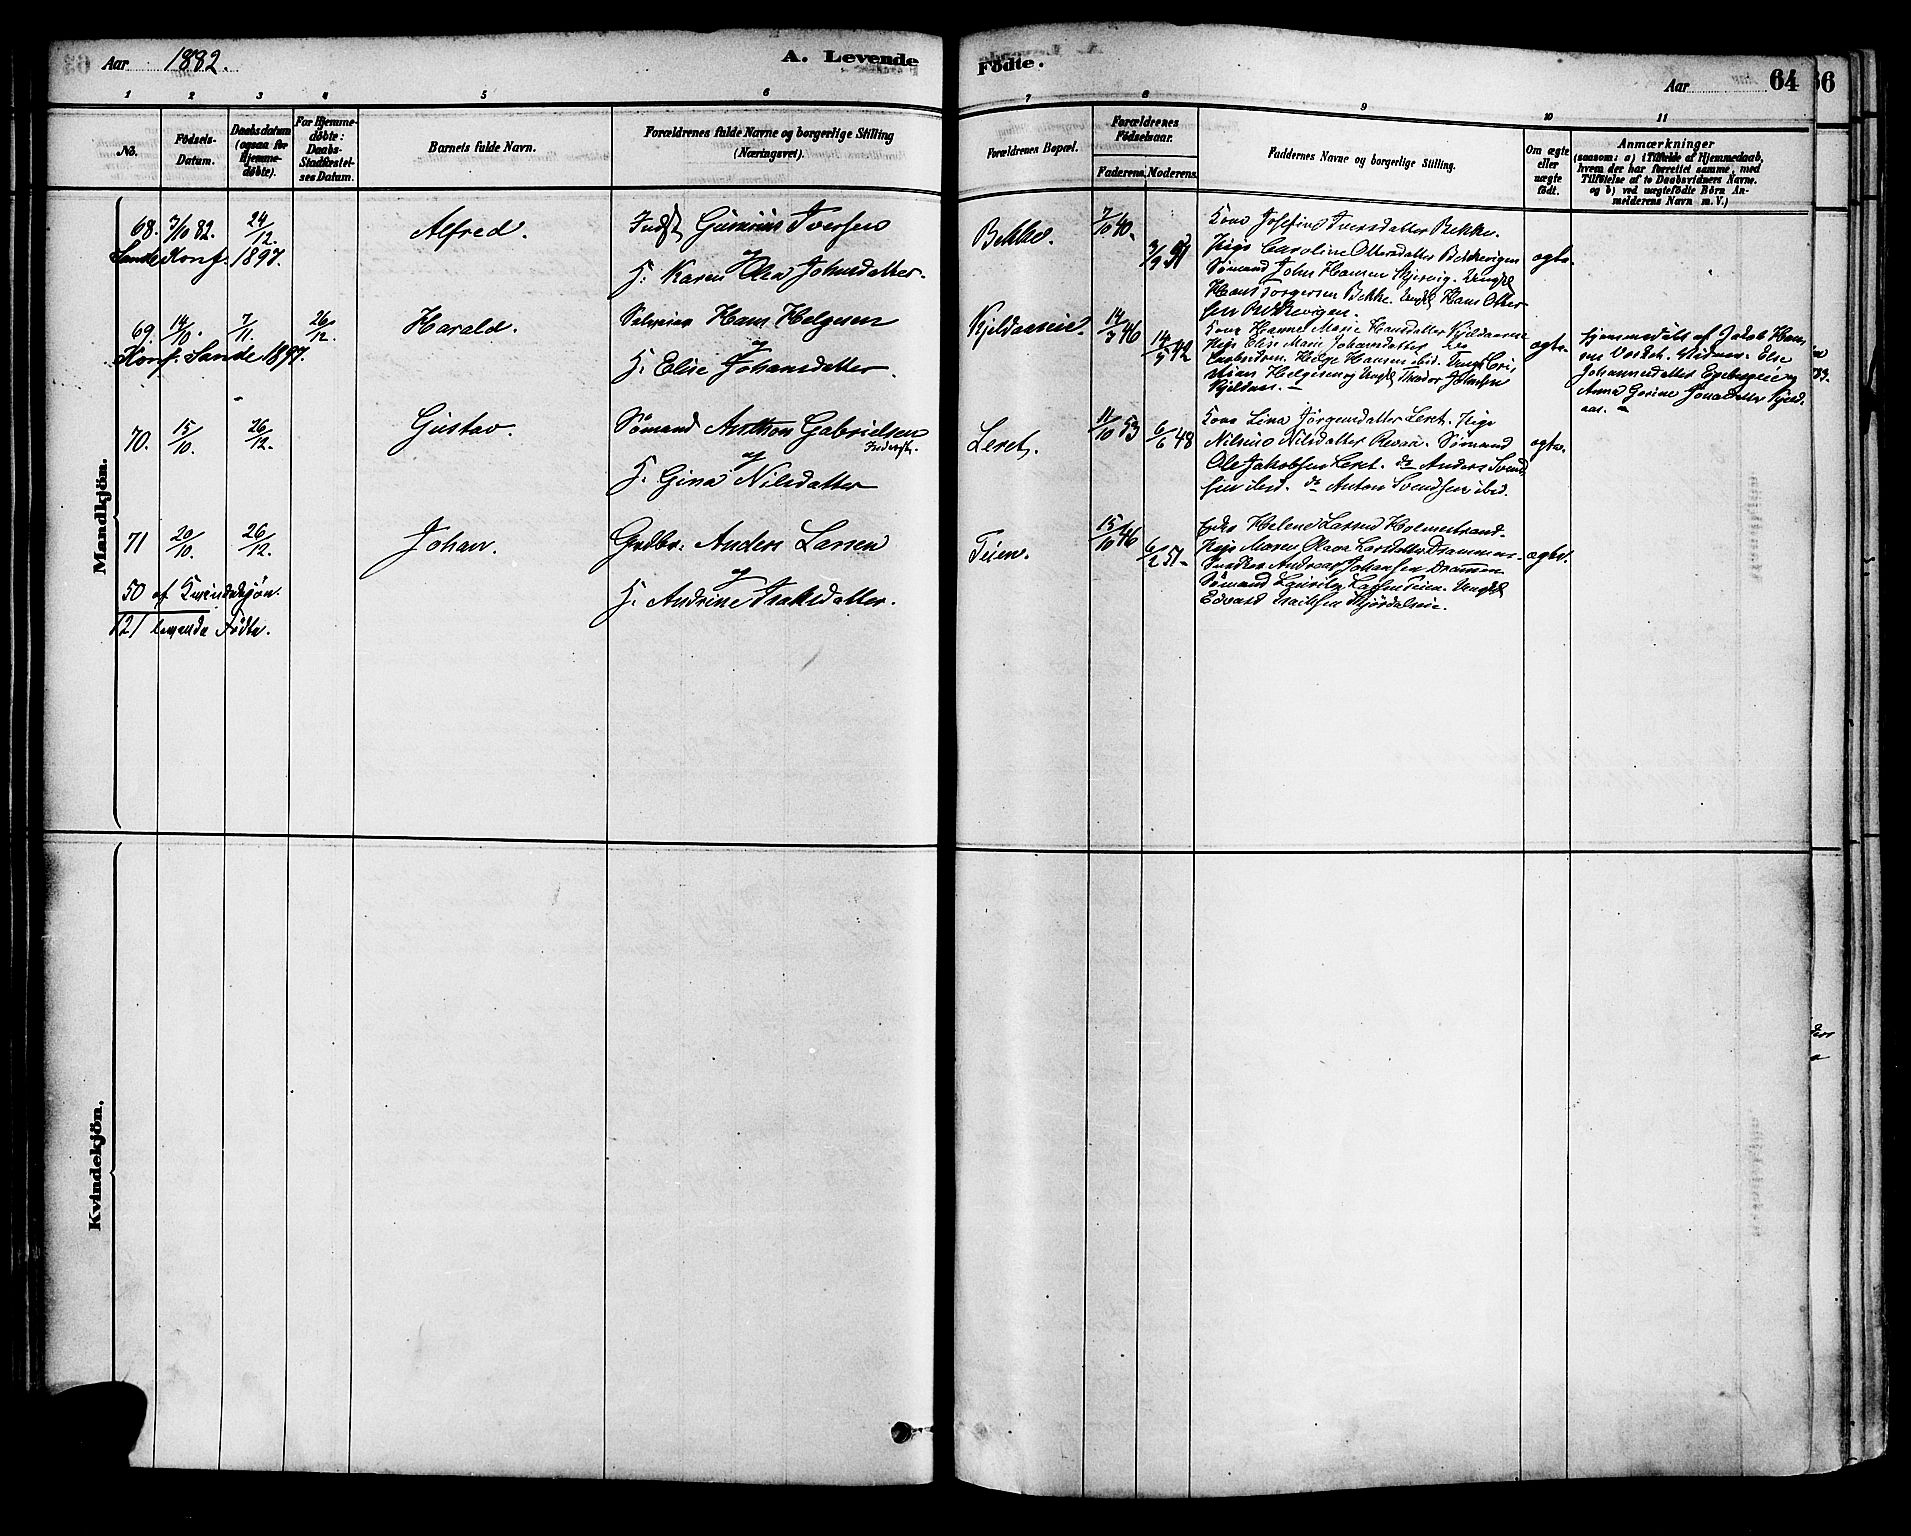 Aar 1882.
A. Levende
Fødte.
Aar
64
66
1 2 3 4 5 6
7 8 9 10 11
No.
Fødsels-
Datum.
Daabsdatum
(ogsaa for
Hjemme-
døbte).
For Hjemme-
døbte:
Daabs-
Stadfæstel-
ses Datum.
Barnets fulde Navn.
Forældrenes fulde Navne og borgerlige Stilling
(Næringsvei).
Forældrenes Bopæl.
Forældrenes
Fødselsaar.
Faderens. Moderens.
Faddernes Navne og borgerlige Stilling.
Om ægte
eller
uægte
født.
Anmærkninger
(saasom: a) i Tilfælde af Hjemmedaab,
hvem der har forrettet samme, med
Tilføielse af to Daabsvidners Navne.
og b) ved uægtefødte Børn An-
melderens Navn m. V.)
Mandkjön.
68. 7/10 82. 24/12. Alfred. Indst Iversen
og
H. Karen Olea Johnsdatter.
Sande Konf. 1897.
Bekke. 7/10 40.
Kone Josefine Iversdatter Bekke.
Pige Caroline Ottersdatter Bekkevigen
Sømand John Hansen Skjervig. Ungkl
Hans Torgersen Bekke. Ungkl Hans Otter-
sen Bekkevigen.
ægte.
69. 14/10. 7/11. 26/12. Harald. Selveier Hans Helgesen
og
H. Elise Johansdatter.
Konf. Sande 1897.
Kjeldaaseie. 14/3 46 14/5 42
Kone Hanne Marie Hansdatter Kjeldaasen
Pige Elise Marie Johannsdatter
Helge Hansen ibid. Ungkl Cri-
stian Helgesen og Ungkl Theodor Johansen
Kjeldaas. —
ægte.
Hjemmedøbt af Jakob Han-
sen Vidner: Else
Johannesdatter og
Anna Gorine Kjeld-
aas. —
70. 15/10. 26/12. Gustav. Sømand Anthon Gabrielsen
og
H. Gina Nilsdatter
Leret. 11/10 53 6/6 48
Kone Lina Jørgensdatter Leret. Pige
Nilsine Nilsdatter Revaa. Sømand
Ole Jakobsen Leret. do Anders Svend-
sen ibid. do Anton Svendsen ibid.
ægte.
71 20/10. 26/12. Johan. Grdbr. Anders Larsen
og
H. Andrine Isaksdatter.
Teien. 15/10 46 6/2 51.
Enke Helene Larsen Holmestrand.
Pige Maren Olava Larsdatter Drammen.
Snedker Andreas Johansen Drammen.
Sømand Lauritz Larsen Teien. Ungkl
Edvard Isaksen
ægte.
50 af Kvindekjøn.
121 levende Fødte.
Kvindekjön.